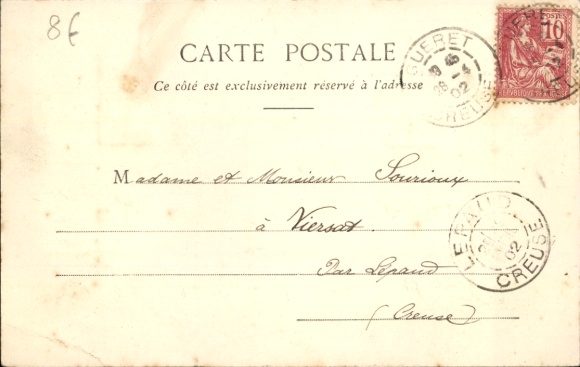 8€
CARTE POSTALE
Ce côté est exclusivement réservé à l'adresse
GUERET
02
CREUSE
POSTES
10
Madame et Monsieur Sourioux
à Viersat
Par Lépaud
(Creuse)
LEPAUD
02
CREUSE